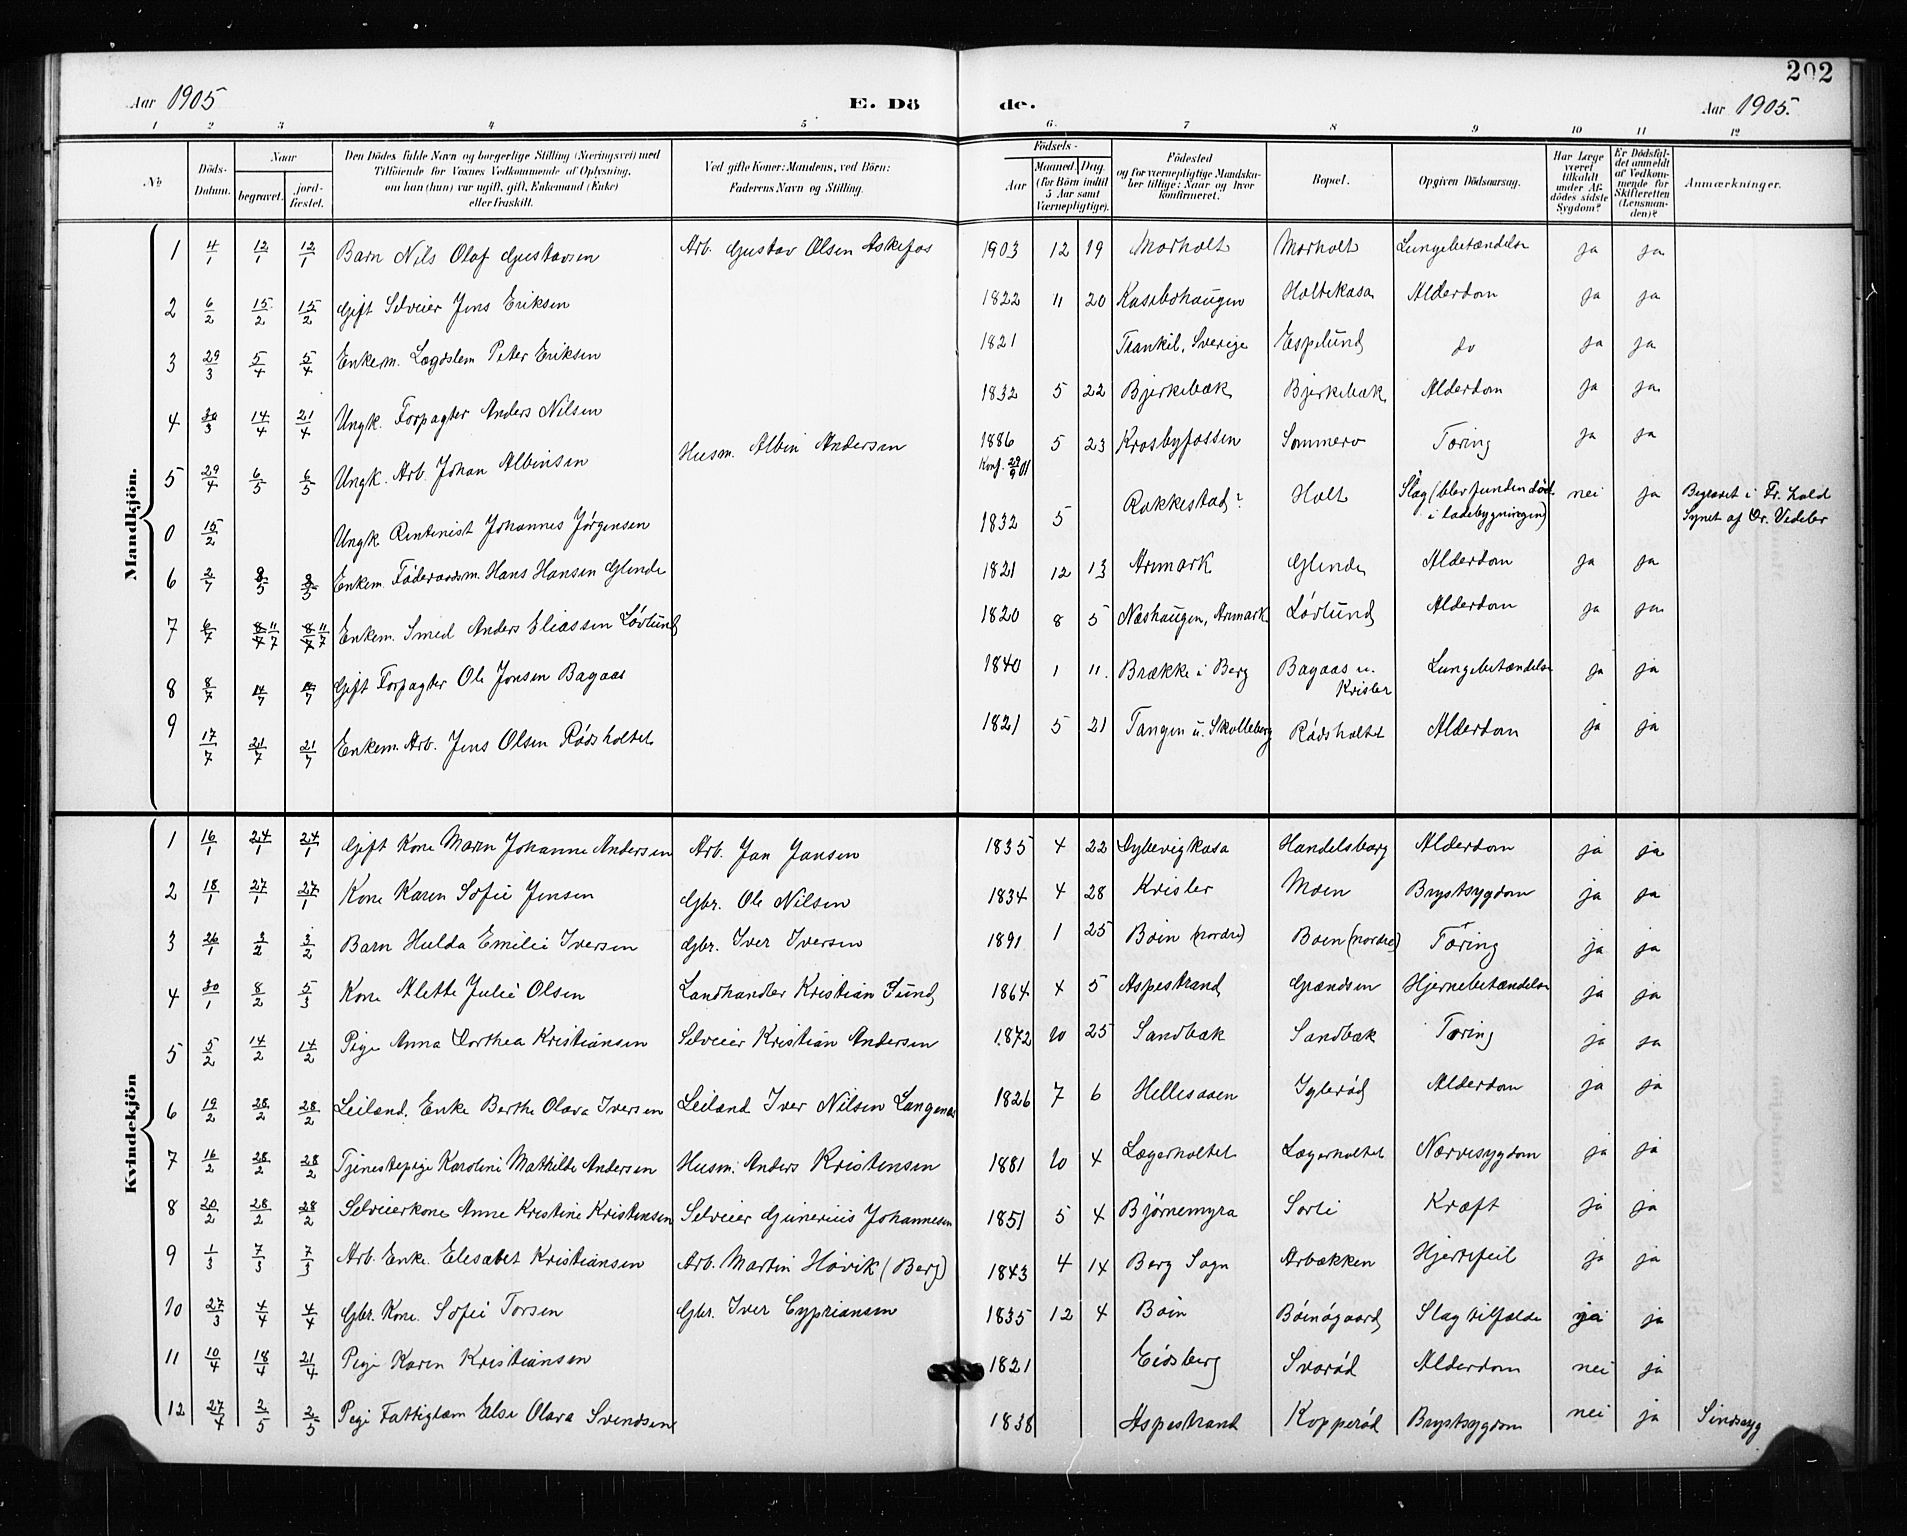 202
Aar 1905 E. Dö de. Aar 1905.
1 2 3 4 5 6 7 8 9 10 11 12
No Döds-Datum. Naar begravet. jord-fæstet. Den Dödes fulde Navn og borgerlige Stilling (Næringsvei) med Tilföiende for Voxnes Vedkommende af Oplysning, om hun (hun) var ugift, gift, Enkemand (Enke) eller fraskilt. Ved gifte Koner: Mandens, ved Börn: Faderens Navn og Stilling. Födsels- Aar Maaned Dag. (for Börn indtil 5 Aar samt Værnepligtige). Födested og for værnepligtige Mandskaber tillige: Naar og hvor konfirmeret. Bopæl. Opgiven Dödsaarsag. Har Læge været tilkaldt under Afdödes sidste Sygdom? Er Dödsfaldet anmeldt af Vedkommende for Skifteretten (Lensmanden)? Anmærkninger.
Mandkjön.
1 11/1 12/1 12/1 Barn Nils Olaf Gustavsen Arb. Gustav Olsen Askefos 1903 12 19 Morholt Morholt Lungebetændelse ja ja
2 6/2 15/2 15/2 Gift Selveier Jens Eriksen 1822 11 20 Kasebohaugen Holtekasa Alderdom ja ja
3 29/3 5/4 5/4 Enkem. Lægdslem Peter Eriksen 1821 Trankil, Sverige Espelund do ja ja
4 30/3 14/4 21/4 Ungk. Forpagter Anders Nilsen 1832 5 22 Bjerkebæk Bjerkebæk Alderdom ja ja
5 29/4 6/5 6/5 Ungk. Arb. Johan Albinsen Husm. Albin Andersen 1886 5 23 Krosbyfossen Sommero Tæring ja ja
Konf. 29/9 01
0 15/2 Ungk. Rentenist Johannes Jørgensen 1832 5 Rakkestad? Holt Slag (blev funden död i ladebygningen) nei ja Begravet i Fr. hald Synet af Dr. Vedeler
6 2/7 Enkem. Föderaadsm. Hans Hansen Glende 1821 12 13 Aremark Glende Alderdom ja ja
7 6/7 8/7 11/7 8/7 11/7 Enkem. Smed Anders Eliassen Lövlund 1820 8 5 Næshaugen, Aremark Lövlund Alderdom ja ja
8 8/7 14/7 14/7 Gift Forpagter Ole Jonsen Bagaas 1840 1 11. Brække i Berg Bagaas u. Krisler Lungebetændelse ja ja
9 17/7 21/7 21/7 Enkem. Arb. Jens Olsen Rödsholtet 1821 5 21 Tangen u. Skolleborg Rödsholtet Alderdom ja ja
Kvindekjön
1 16/1 24/1 24/1 Gift Kone Maren Johanne Andersen Arb. Jan Jansen 1835 4 22 Dybevigkasa Handelsborg Alderdom ja ja
2 18/1 27/1 27/1 Kone Karen Sofie Jensen Gbr. Ole Nilsen 1834 4 28 Krisler Moen Brystsygdom ja ja
3 26/1 3/2 3/2 Barn Hulda Emilie Iversen Gbr. Iver Iversen 1891 1 25 Boin (nordre) Boen (nordre) Tæring ja ja
4 30/1 8/2 5/3 Kone Alette Julie Olsen Landhandler Kristian Sund 1864 4 5 Aspestrand Grændsen Hjernebetændelse ja ja
5 5/2 14/2 14/2 Pige Anna Dorthea Kristiansen Selveier Kristian Andersen 1872 10 25 Sandbæk Sandbæk Tæring ja ja
6 19/2 28/2 28/2 Leiland. Enke Berthe Olava Iversen Leiland Iver Nilsen Langenes 1826 7 6 Hellesaaen Iglerød Alderdom ja ja
7 16/2 28/2 28/2 Tjenestepige Karoline Mathilde Andersen Husm. Anders Kristensen 1881 10 4 Lægerholtet Lægerholtet Nervesygdom ja ja
8 20/2 28/2 28/2 Selveierkone Anne Kristine Kristensen Selveier Gunerius Johannesen 1851 5 4 Bjørnemyra Sorli Kræft ja ja
9 1/3 7/3 7/3 Arb. Enke. Elisabet Kristiansen Arb. Martin Høvik (Berg) 1843 4 14 Berg Sogn Arbækken Hjertefeil ja ja
10 27/3 4/4 4/4 Gbr. Kone. Sofie Torsen Gbr. Iver Cyprianson 1835 12 4 Boin Böinögaard Slagtilfælde ja
11 10/4 18/4 21/4 Pige Karen Kristiansen 1821 Eidsberg Svarød Alderdom nei ja
12 27/4 2/5 2/5 Pige Fattiglem Else Olava Svendsen 1838 Aspestrand Kopperød Brystsygdom nei ja Sindssyg